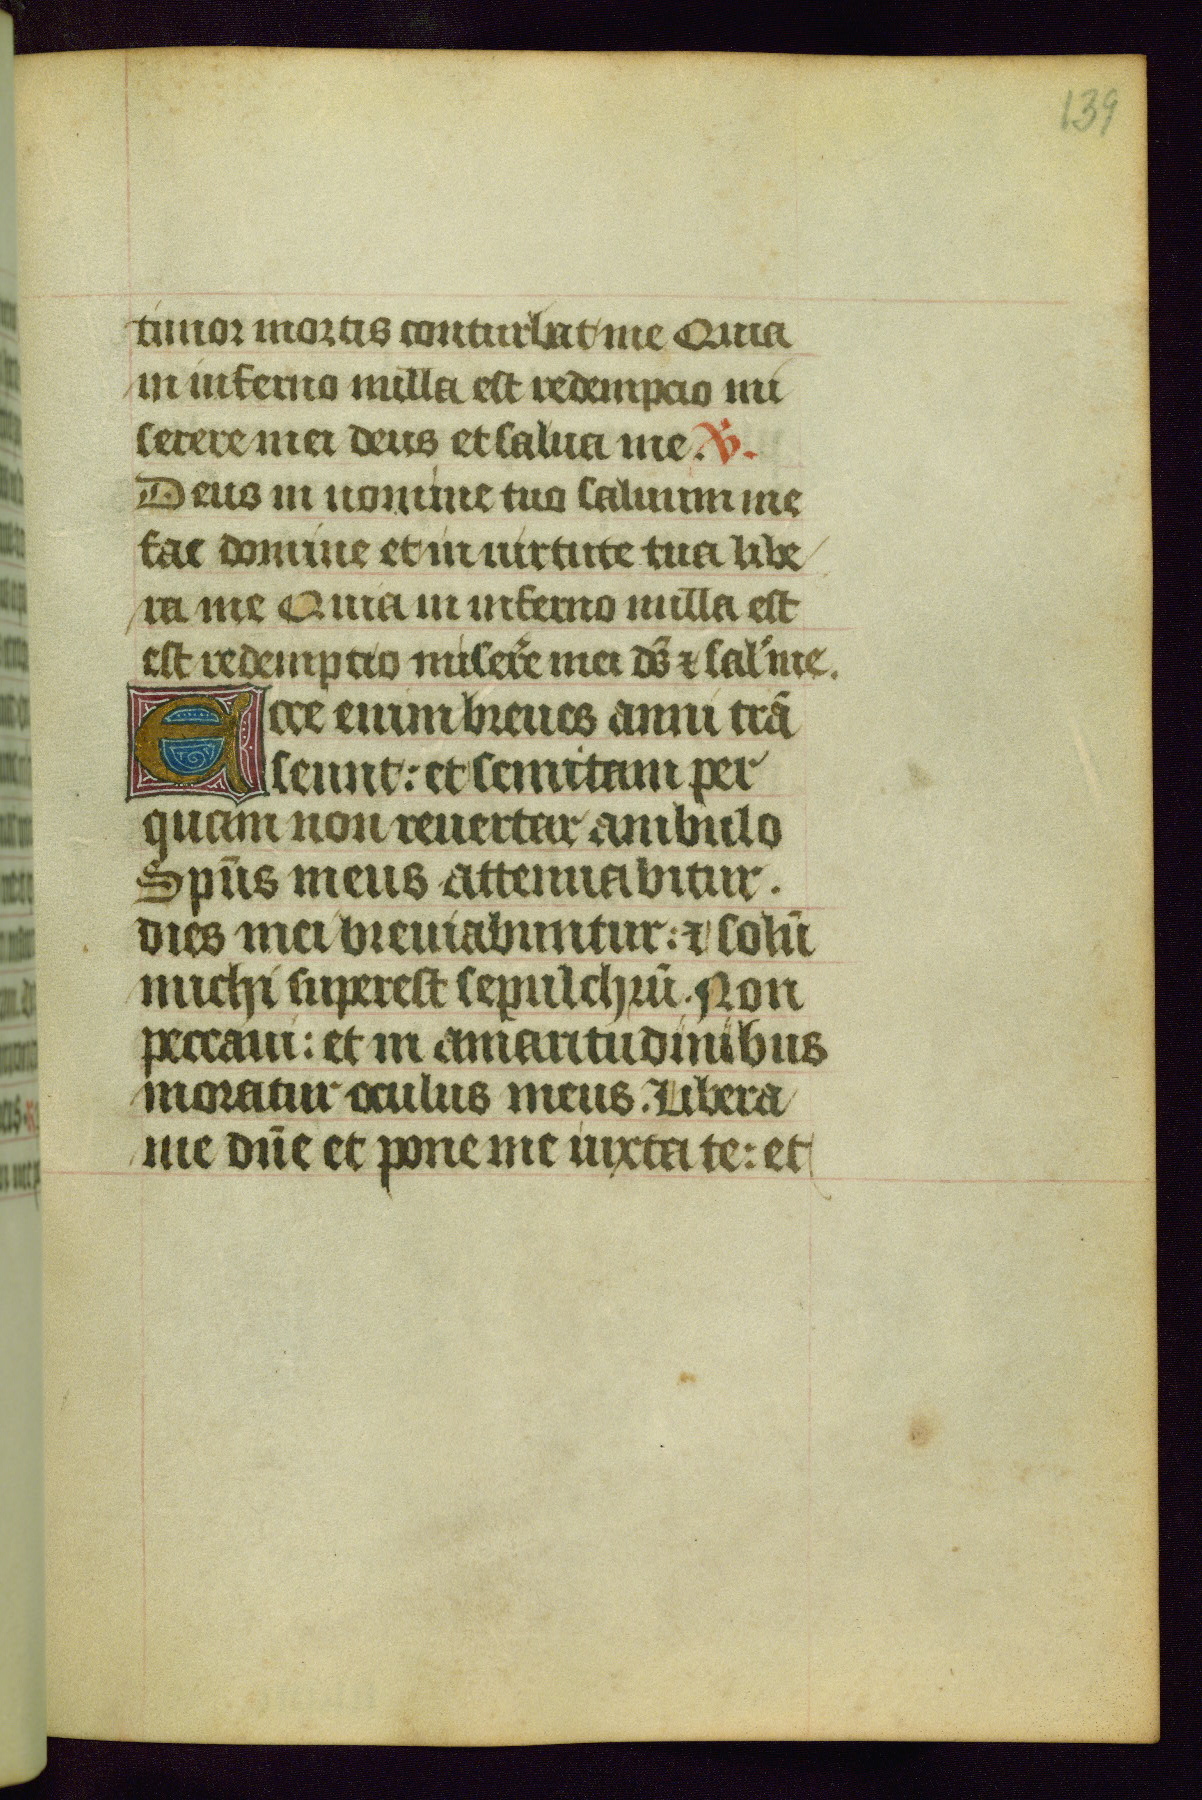 139
timor mortis conturbat me Quia
in inferno nulla est redempcio mi
serere mei deus et salua me. V.
Deus in nomine tuo saluum me
fac domine et in uirtute tua libe
ra me Quia in inferno nulla est
est redempcio miser̄e mei ds̄ ⁊ sal' me.
Ecce enim breues anni trā
seunt: et semitam per
quam non reuertar ambulo
Spūs meus attenuabitur.
dies mei breuiabuntur: ⁊ solū
michi superest sepulchrū. Non
peccaui: et in amaritudinibus
moratur oculus meus. Libera
me dn̄e et pone me iuxta te: et